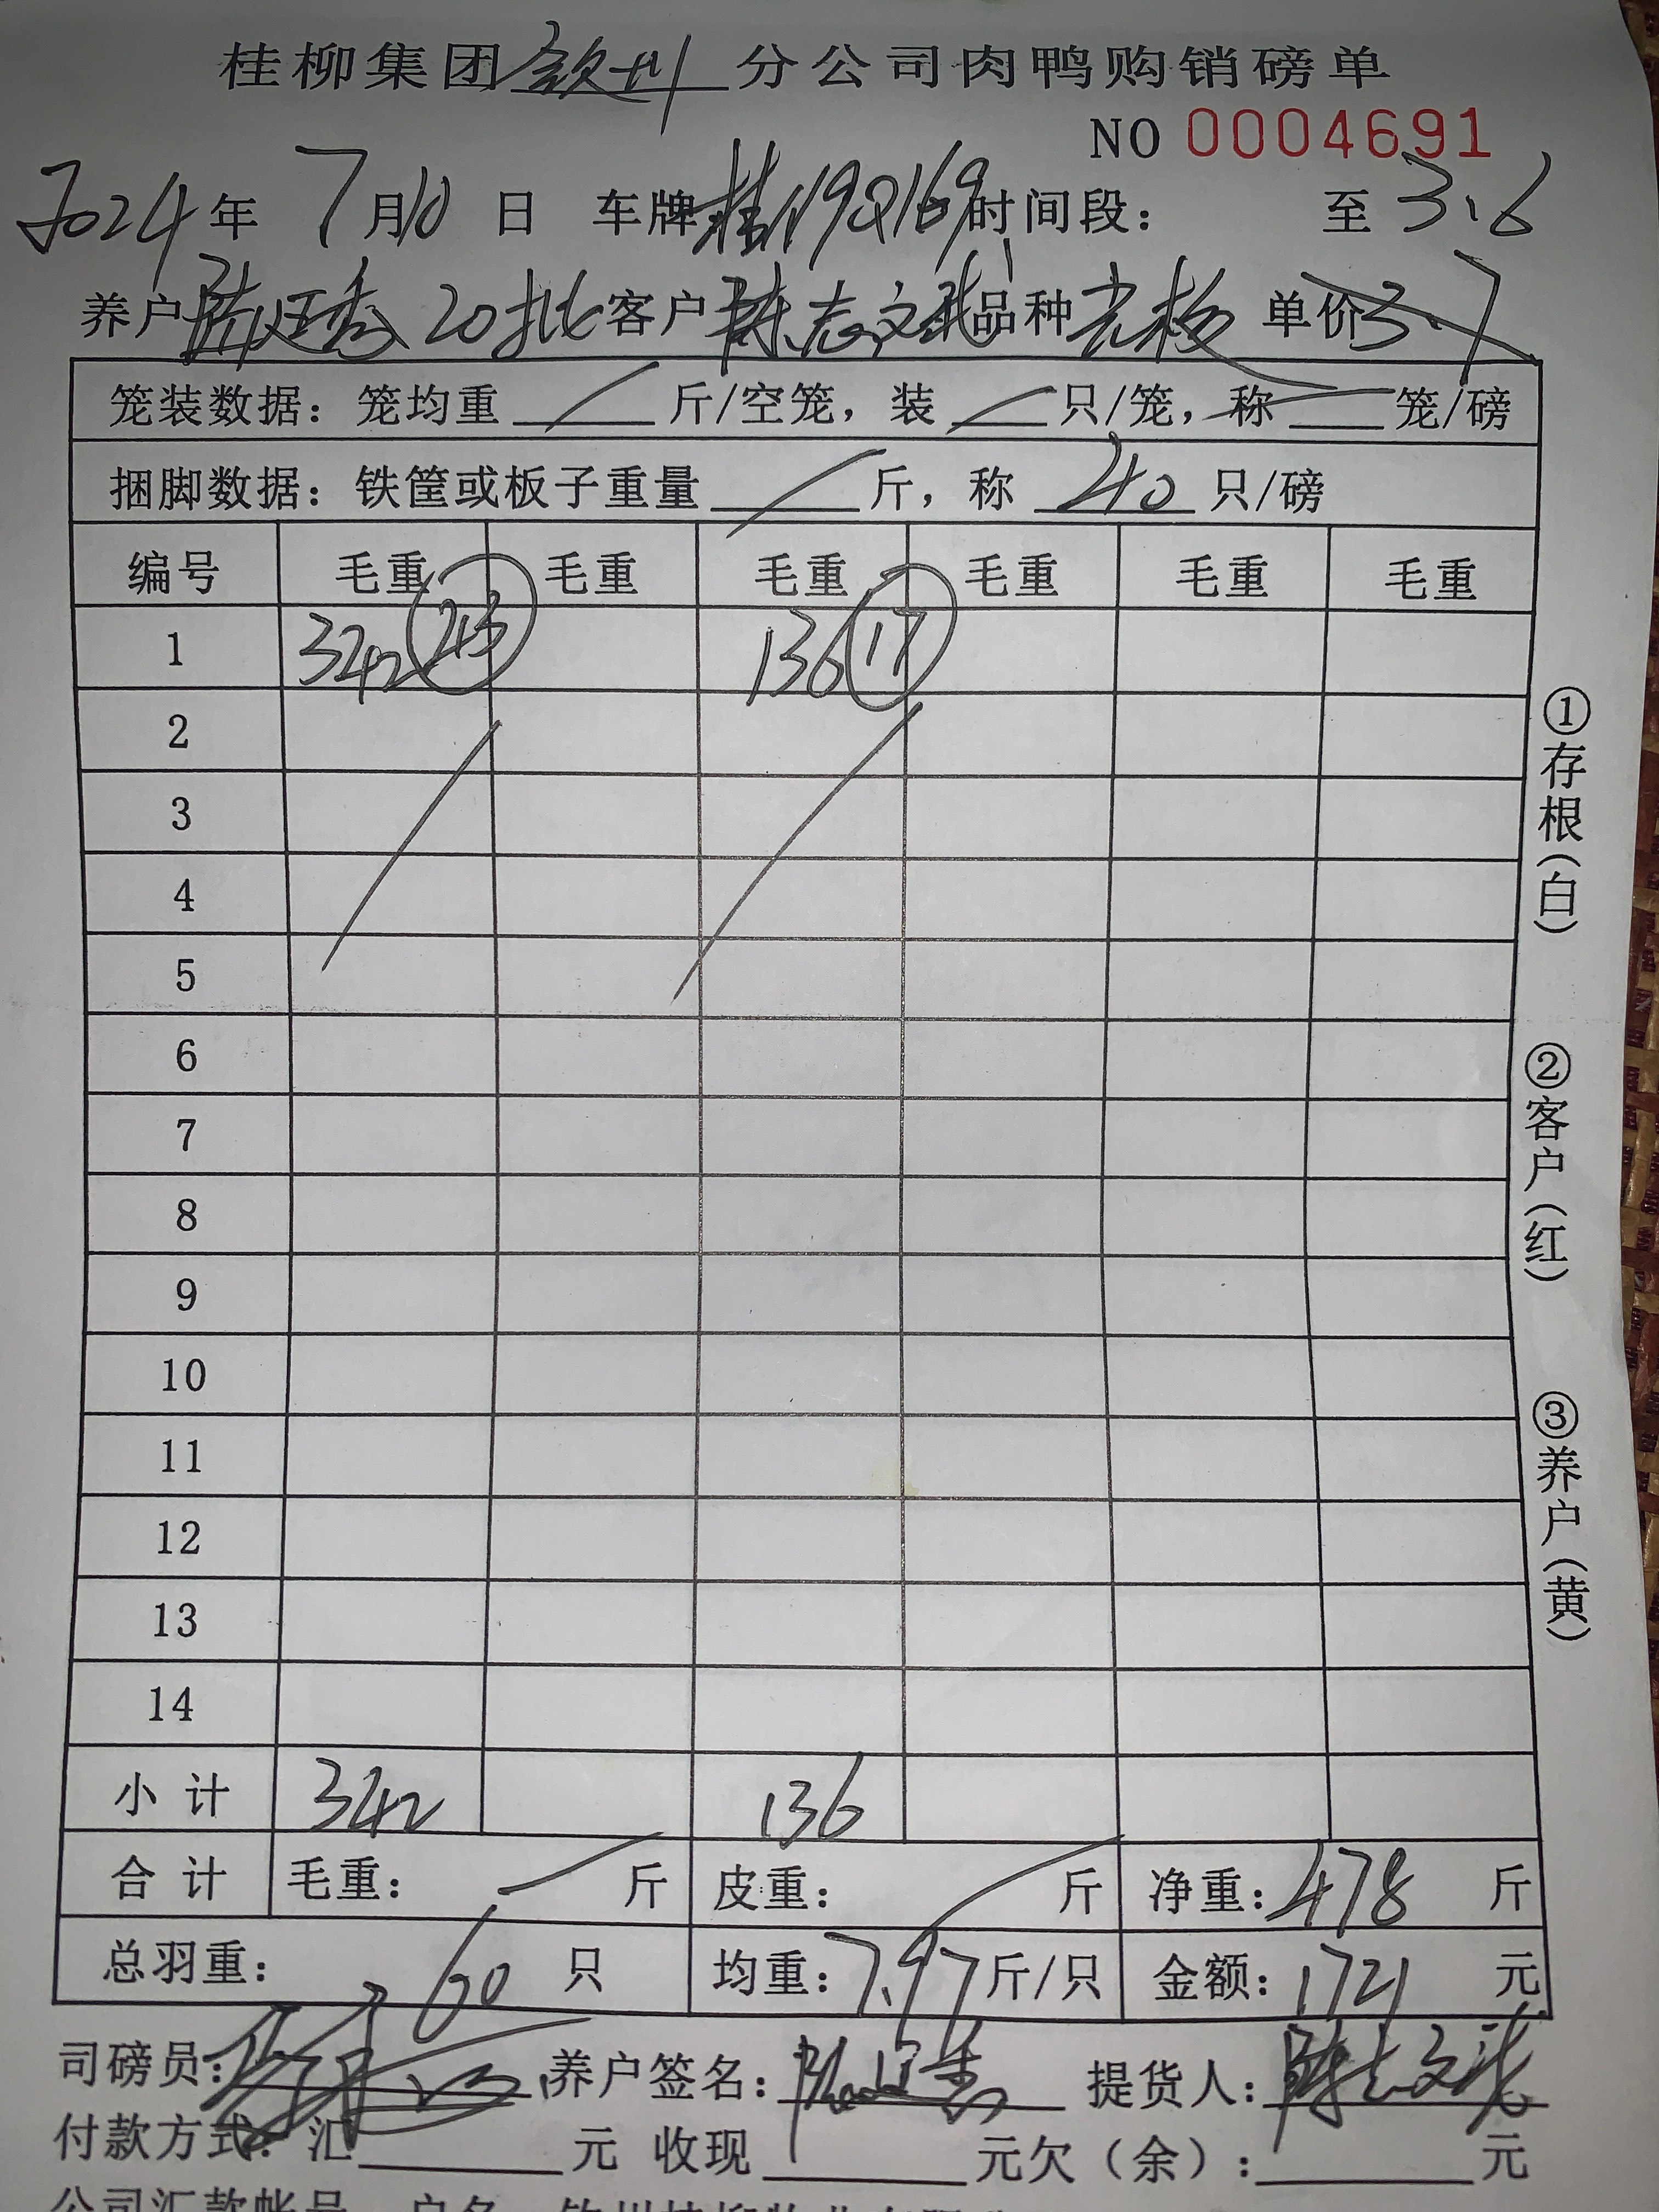 桂柳集团钦州分公司肉鸭购销磅单
NO 0004691
2024年 7月10日 车牌桂N9Q169时间段: 至 3.6
养户陈廷秀 20批 客户陈志文 品种 单价3.7
笼装数据: 笼均重 斤/空笼, 装 只/笼, 称 笼/磅
捆脚数据: 铁筐或板子重量 斤, 称 40 只/磅
编号 毛重 毛重 毛重 毛重 毛重 毛重
1 342 43 136 17
2
3
4
5
6
7
8
9
10
11
12
13
14
小 计 342 136
合 计 毛重: 斤 皮重: 斤 净重: 478 斤
总羽重: 60 只 均重: 7.97 斤/只 金额: 1721 元
①存根(白)
②客户(红)
③养户(黄)
司磅员: 养户签名: 提货人: 陈志文
付款方式: 汇 元 收现 元欠(余): 元